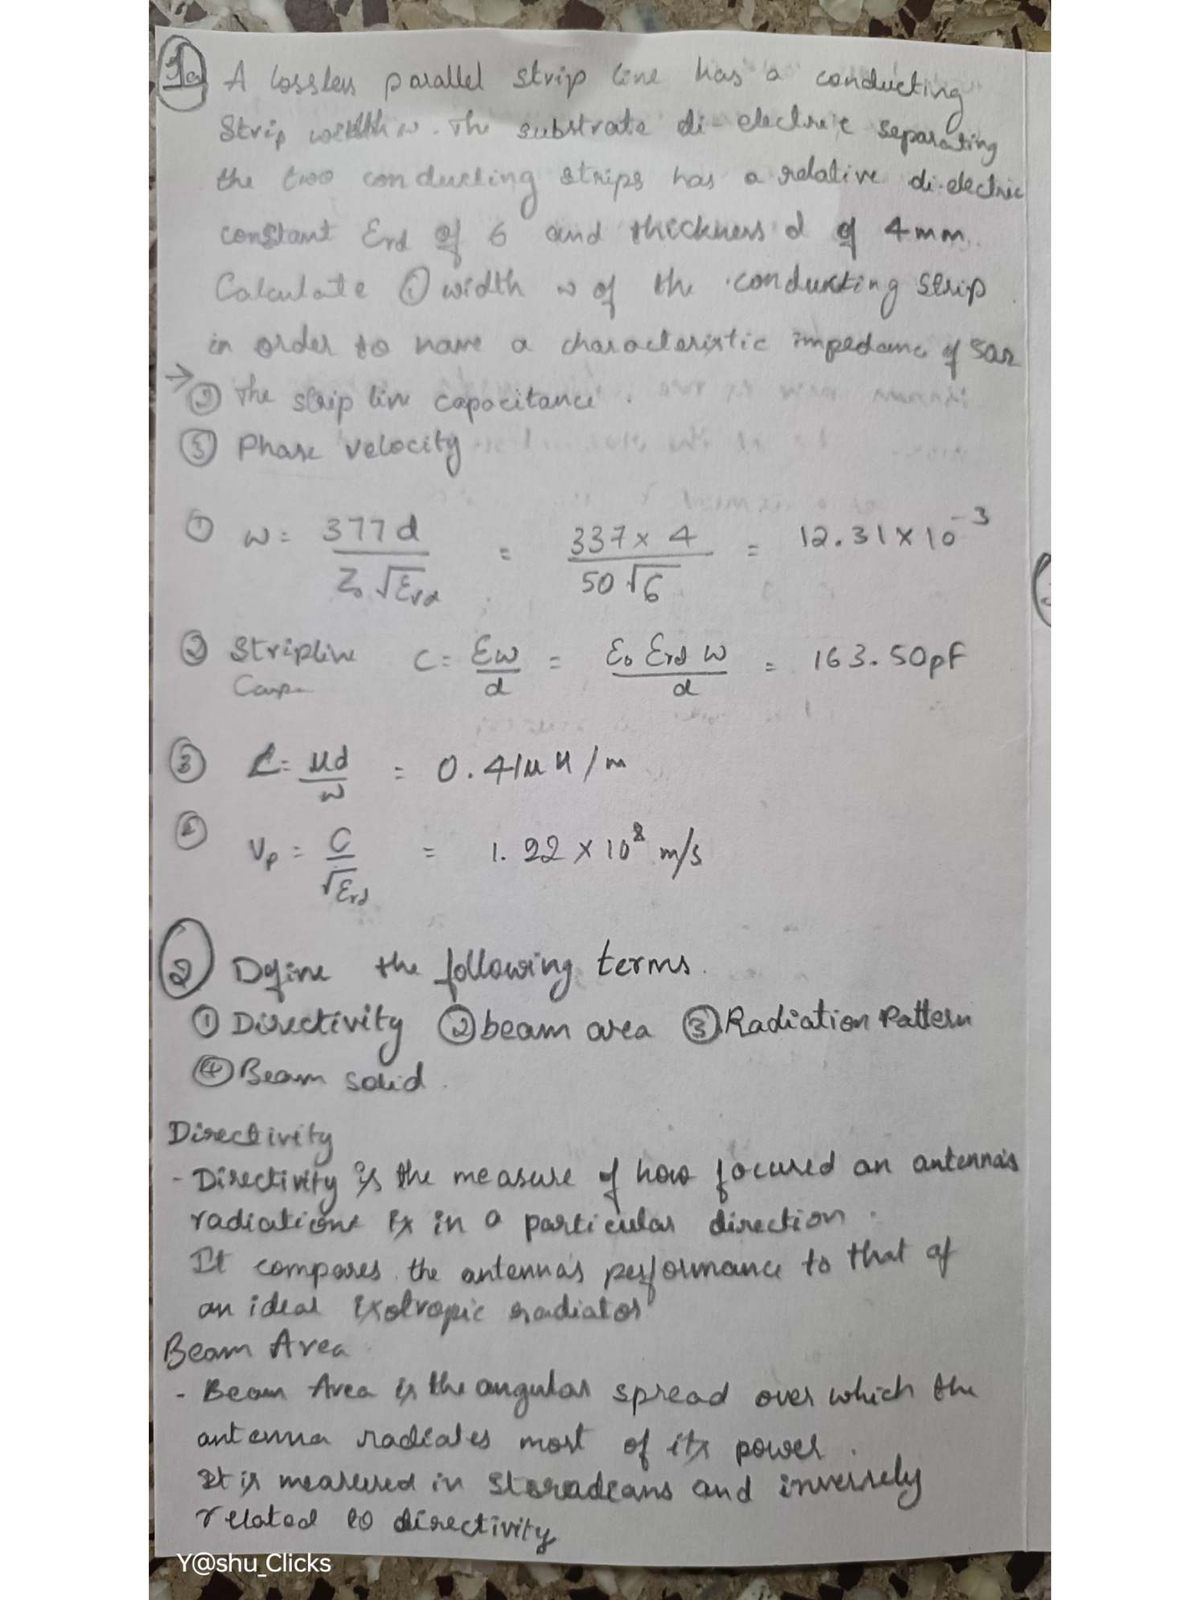 1a A lossless parallel strip line has a conducting
Strip width w. The substrate di-electric separating
the two conducting strips has a relative di-electric
constant Erd of 6 and thickness d of 4mm.
Calculate ① width w of the conducting strip
in order to have a characteristic impedance of 50Ω
→ ② The strip line capacitance.
③ Phase velocity
① w = 377d / Z₀√Erd = 337 x 4 / 50√6 = 12.31 x 10⁻³
② Stripline Cap. C = Ew / d = E₀ Erd w / d = 163.50pF
③ L = μd / w = 0.41μH/m
Vp = C / √Erd = 1.22 x 10⁸ m/s
② Define the following terms.
① Directivity ② beam area ③ Radiation Pattern
④ Beam solid.
Directivity
- Directivity is the measure of how focused an antenna's
radiations is in a particular direction.
It compares the antenna's performance to that of
an ideal isotropic radiator
Beam Area
- Beam Area is the angular spread over which the
antenna radiates most of its power.
It is measured in steradeans and inversely
related to directivity
Y@shu_Clicks